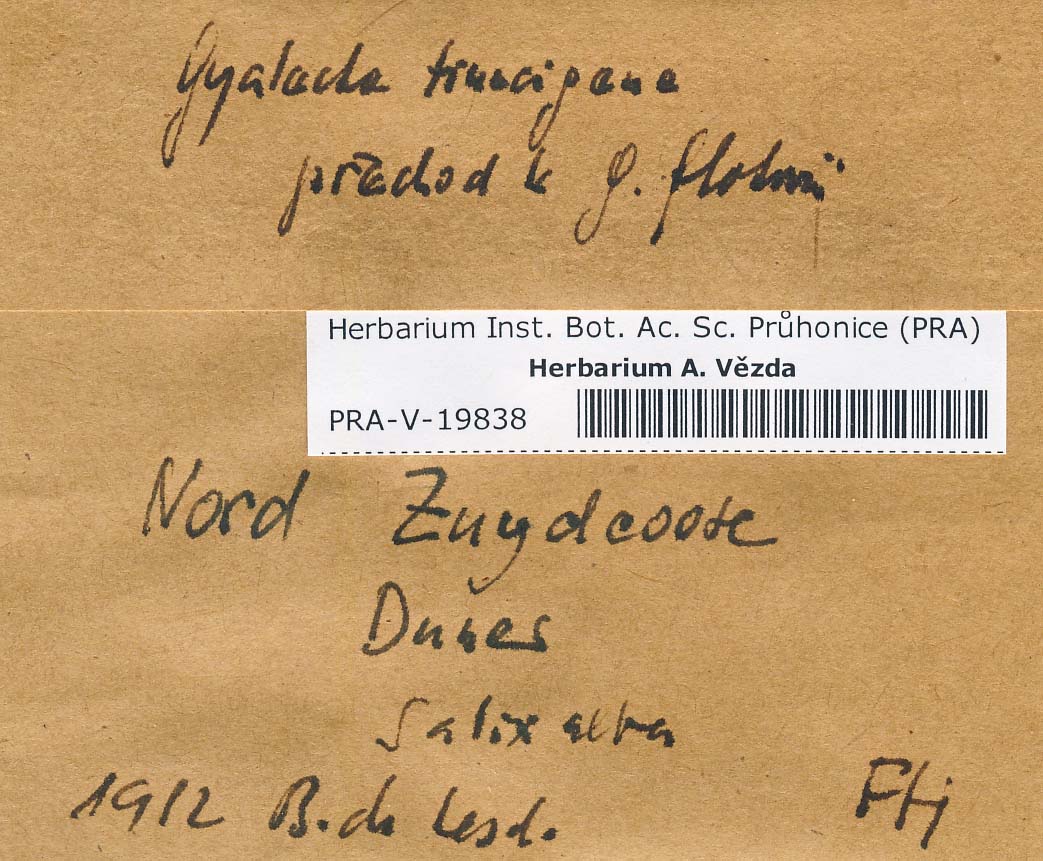 Gyalecta truncigena
přechod k G. flotowii
Herbarium Inst. Bot. Ac. Sc. Průhonice (PRA)
Herbarium A. Vězda
PRA-V-19838
Nord Zuydcoote
Dunes
Salix alba
1912 B. de Lesd.